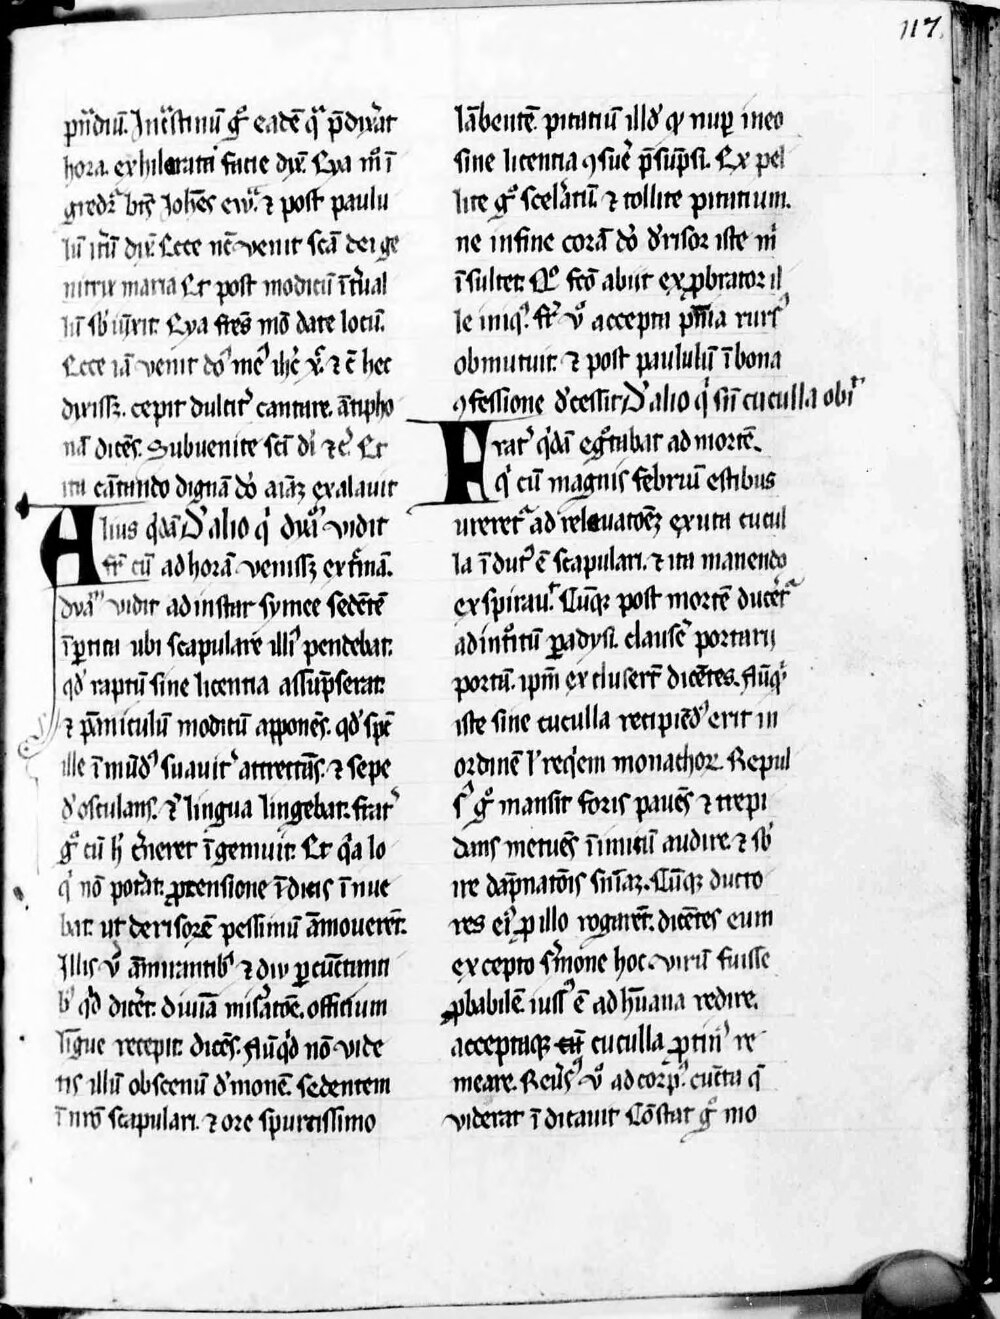 117
hora. exhilarata facie dix̄. Eya m̄ ī
gredr̄ bt̄s Joh̄es ew̄. ⁊ post paulu
lū itū dix̄. Ecce nē venit scā dei ge
nitrix maria Et post modicū īt̄ual
Eya frēs mō date locū.
Ecce iā venit dō me ih̄c xp̄ ⁊ ē hec
dixissꝫ. cepit dulcit̄ cantare. ātipho
nā dicēs. Subuenite scī dī ⁊c̄. Et
ita cātando dignā dō aīaꝫ exalauit
Alius qͥdā D' alio qͥ dyᵃm vidit
fr̄ cū ad horā venissꝫ ext̄nā.
dyᵃm vidit ad instar symee sedētē
īꝑticᵃ ubi scapulare illiᵒ pendebat.
qd' raptū sine licentia assūpserat.
⁊ pāniculū modicū apponēs. qd' spē
ille īmūd' suauit' attrectās. ⁊ sepe
d'osculans. ⁊ lingua lingebat. frat'
gͦ cū h' c̄neret īgemuit. Et qͥa lo
qͥ nō pot̄at. ꝓtensione īdicis īnue
bat. ut derisorē pessimū āmouerēt.
Illis v̄ āmirantibꝰ ⁊ diu ꝑcūctanti
bꝰ qͥd dicēt. diuīa mis̄atōe. officium
līgue recepit. dicēs. Nūqͥd nō vide
tis illū obscenū d'monē. sedentem
ī nrō scapulari. ⁊ ore spurcissimo
lābentē. pitaciū illud' qd' nup̄ in eo
sine licentia ꝯsuē p̄sūpsi. Expel
lite gͦ scel̄atū. ⁊ tollite pitatium.
ne in fine corā dō d'risor iste m̄
īsultet. Qͦ fcō abiit exꝓbrator il
le iniqꝰ. fr̄ v̄ accepta pn̄ia rursꝰ
obmutuit. ⁊ post paululū ī bona
ꝯfessione d'cessit D' alio qͥ sn̄ cuculla obiͭ
Frat' qͥdā egͦtabat ad mortē.
qͥ cū magnis febriū estibus
ureretᵃ ad releuatōeꝫ exuta cucul
la īdutᵒ ē scapulari. ⁊ ita manendo
expirauͭ. Cūqꝫ post mortē ducer̄
ad int̄tū ꝑadysi. clause portarij
portā. ipm̄ excluserūt dicētes. Nūqͥd
iste sine cuculla recipiēdᵒ erit in
ordinē l' reqͥem monachoꝝ. Repul
sᵒ gͦ mansit foris pauēs ⁊ trepi
dans metuēs inimicū audire. ⁊ sb'
ire dāpnatōis sn̄iaꝫ. Cūqꝫ ducto
res eiᵒ ꝓ illo rogarēt. dicētes eum
excepto s'mone hoc. virū fuisse
ꝓbabilē. iussᵒ ē ad hūana redire.
acceptaqꝫ cuculla ꝓtinᵒ re
meare. Reūsᵒ v̄ ad corpᵒ. cūcta q̄
viderat īdicauit Cōstat gͦ mo